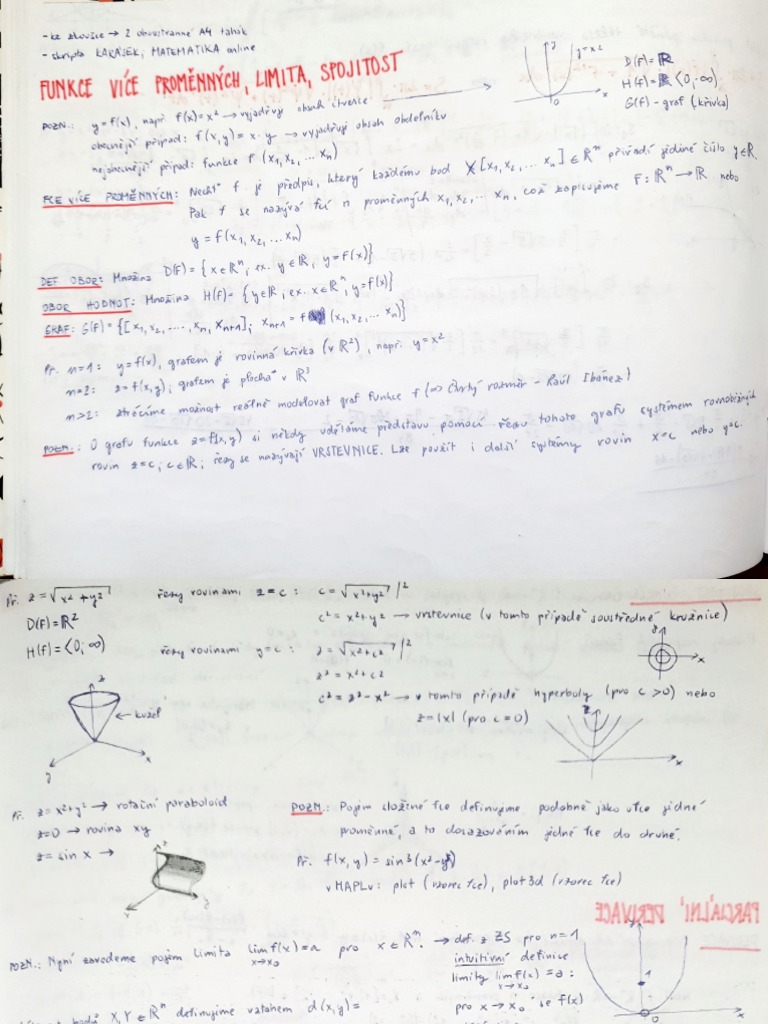 - ke zkoušce → 2 oboustranné A4 tahák
- skripta KARÁSEK; MATEMATIKA online
FUNKCE VÍCE PROMĚNNÝCH, LIMITA, SPOJITOST
POZN.: y=f(x), např f(x)=x² → vyjadřuje obsah čtverce
obecnější případ: f(x,y) = x·y → vyjadřuje obsah obdélníku
nejobecnější případ: funkce f (x₁,x₂,... xₙ)
y
y=x²
x
0
D(f)=ℝ
H(f)= ⟨0;∞)
G(f) - graf (křivka)
FCE VÍCE PROMĚNNÝCH: Nechť f je předpis, který každému bodu X[x₁,x₂,... xₙ] ∈ ℝⁿ přiřadí jediné číslo y∈ℝ.
Pak f se nazývá fcí n proměnných x₁,x₂,... xₙ, což zapisujeme F: ℝⁿ → ℝ nebo
y = f(x₁,x₂,... xₙ)
DEF OBOR: Množina D(f) = {x∈ℝⁿ; ex. y∈ℝ; y=f(x)}
OBOR HODNOT: Množina H(f)= {y∈ℝ; ex. x∈ℝⁿ; y=f(x)}
GRAF: G(f) = {[x₁,x₂,...,xₙ,xₙ₊₁]; xₙ₊₁ = f (x₁,x₂,...xₙ)}
Př. n=1: y=f(x), grafem je rovinná křivka (v ℝ²), např. y=x²
n=2: z=f(x,y); grafem je plocha v ℝ³
n>2: ztrácíme možnost reálně modelovat graf funkce f (=> Čtvrtý rozměr - Raúl Ibáñez)
POZN.: O grafu funkce z=f(x,y) si někdy uděláme představu pomocí řezu tohoto grafu systémem rovnoběžných
rovin z=c; c∈ℝ; řezy se nazývají VRSTEVNICE. Lze použít i další systémy rovin x=c nebo y=c.
Př. z=√(x²+y²) řezy rovinami z=c: c=√(x²+y²) /²
D(f)=ℝ²
c²=x²+y² → vrstevnice (v tomto případě soustředné kružnice)
H(f)=⟨0;∞)
y
x
řezy rovinami y=c: z=√(x²+c²) /²
z²=x²+c²
c²=z²-x² → v tomto případě hyperboly (pro c>0) nebo
z=|x| (pro c=0)
z
← kužel
x
y
z
x
Př. z=x²+y² → rotační paraboloid
z=0 → rovina xy
z=sin x →
POZN.: Pojem složené fce definujeme podobně jako u fce jedné
proměnné, a to dosazováním jedné fce do druhé.
Př. f(x,y) = sin³(x²-y)
v MAPLu: plot (vzorec fce), plot3d (vzorec fce)
PARCIÁLNÍ DERIVACE
POZN.: Nyní zavedeme pojem limita lim f(x)=a pro x∈ℝⁿ.
x→x₀
→ def. z ZŠ pro n=1
intuitivní definice
limity lim f(x)=a:
x→x₀
pro x→x₀ se f(x)
bodů X,Y∈ℝⁿ definujeme vztahem d(x,y)=
y
1
0
x